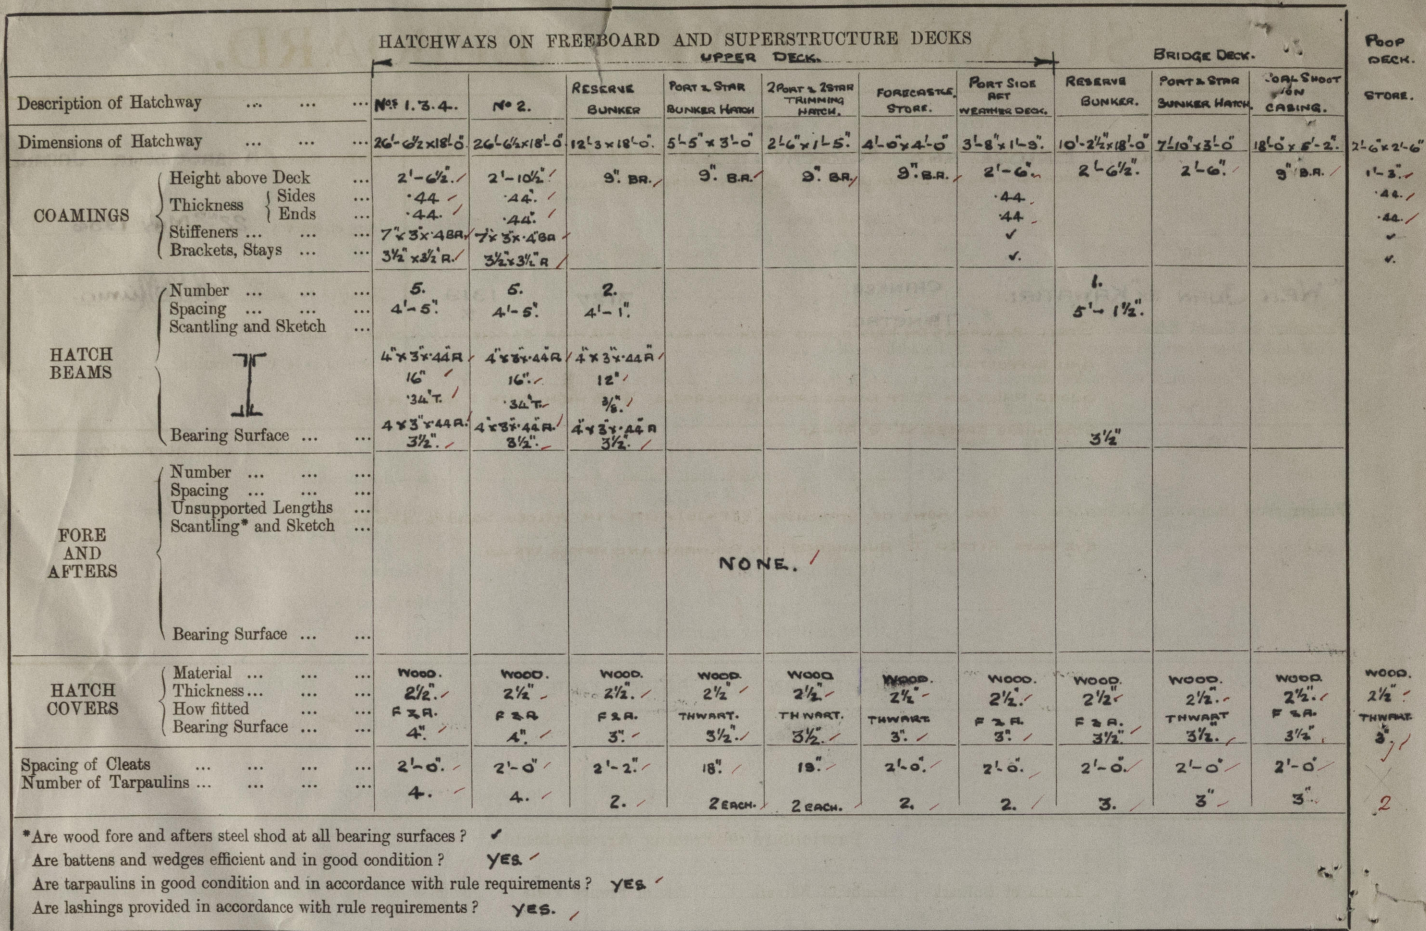 HATCHWAYS ON FREEBOARD AND SUPERSTRUCTURE DECKS
UPPER DECK. BRIDGE DECK. POOP DECK.
Description of Hatchway ... ... ... Nos 1. 3. 4. No 2. RESERVE BUNKER PORT & STAR BUNKER HATCH 2 PORT & 2 STAR TRIMMING HATCH. FORECASTLE STORE. PORT SIDE AFT WEATHER DECK. RESERVE BUNKER. PORT & STAR BUNKER HATCH. COAL SHOOT ON CASING. STORE.
Dimensions of Hatchway ... ... ... 26'-6½"x18'-0" 26'-6½"x18'-0" 12'-3"x18'-0" 5'-5"x3'-0" 2'-6"x1'-5" 4'-0"x4'-0" 3'-8"x1'-9" 10'-2½"x18'-0" 7'-10"x3'-0" 18'-0"x5'-2" 2'-6"x2'-6"
COAMINGS
Height above Deck ... 2'-6½" 2'-10½" 9" B.A. 9" B.A. 9" B.A. 9" B.A. 2'-6" 2'-6½" 2'-6" 9" B.A. 1'-3"
Thickness { Sides ... .44 .44" .44 .44
Ends ... .44 .44" .44 .44
Stiffeners ... ... ... 7"x3"x.4 BA 7"x3"x.4 BA ✓ ✓
Brackets, Stays ... ... 3½"x3½" A 3½"x3½" A ✓ ✓
HATCH BEAMS
Number ... ... ... 5. 5. 2. 1.
Spacing ... ... ... 4'-5" 4'-5" 4'-1" 5'-1½"
Scantling and Sketch ...
4"x3"x.44 A 4"x3"x.44 A 4"x3"x.44 A
16" 16" 12"
.34"T. .34"T. 3/8"
4"x3"x.44 A 4"x3"x.44 A 4"x3"x.44 A
Bearing Surface ... ... 3½" 3½" 3½" 3½"
FORE AND AFTERS
Number ... ... ...
Spacing ... ... ...
Unsupported Lengths ...
Scantling* and Sketch ...
NONE.
Bearing Surface ... ...
HATCH COVERS
Material ... ... ... WOOD. WOOD. WOOD. WOOD. WOOD WOOD. WOOD. WOOD. WOOD. WOOD WOOD.
Thickness ... ... ... 2½" 2½" 2½" 2½" 2½" 2½" 2½" 2½" 2½" 2½" 2½"
How fitted ... ... F & A. F & A F & A. THWART. THWART. THWART F & A. F & A. THWART F & A. THWART
Bearing Surface ... ... 4" 4" 3" 3½" 3½" 3" 3" 3½" 3½" 3½" 3"
Spacing of Cleats ... ... ... ... 2'-0" 2'-0" 2'-2" 18" 19" 2'-0" 2'-0" 2'-0" 2'-0" 2'-0"
Number of Tarpaulins ... ... ... ... 4. 4. 2. 2 EACH. 2 EACH. 2. 2. 3. 3" 3" 2
*Are wood fore and afters steel shod at all bearing surfaces ? ✓
Are battens and wedges efficient and in good condition ? YES
Are tarpaulins in good condition and in accordance with rule requirements ? YES
Are lashings provided in accordance with rule requirements ? YES.